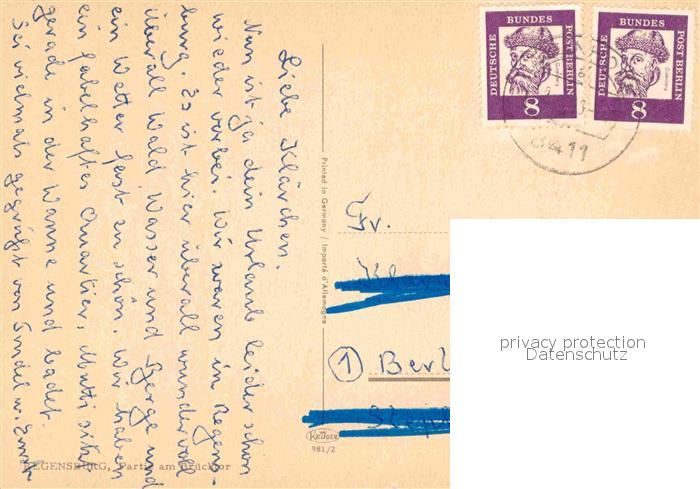 Liebe Klärchen.
Nun ist ja dein Urlaub leider schon
wieder vorbei. Wir waren in Regens-
burg. Es ist hier überall wundervoll
überall Wald Wasser und Berge und
ein Wetter fast zu schön. Wir haben
ein fabelhaftes Quartier, Mutti sitzt
gerade in der Wanne und badet.
Sei vielmals gegrüßt von
REGENSBURG, Partie am Brücktor
Printed in Germany / Importé d'Allemagne
KRÜGER
981/2
DEUTSCHE BUNDES POST BERLIN
8
DEUTSCHE BUNDES POST BERLIN
8
11
Fr.
1 Berl
privacy protection
Datenschutz